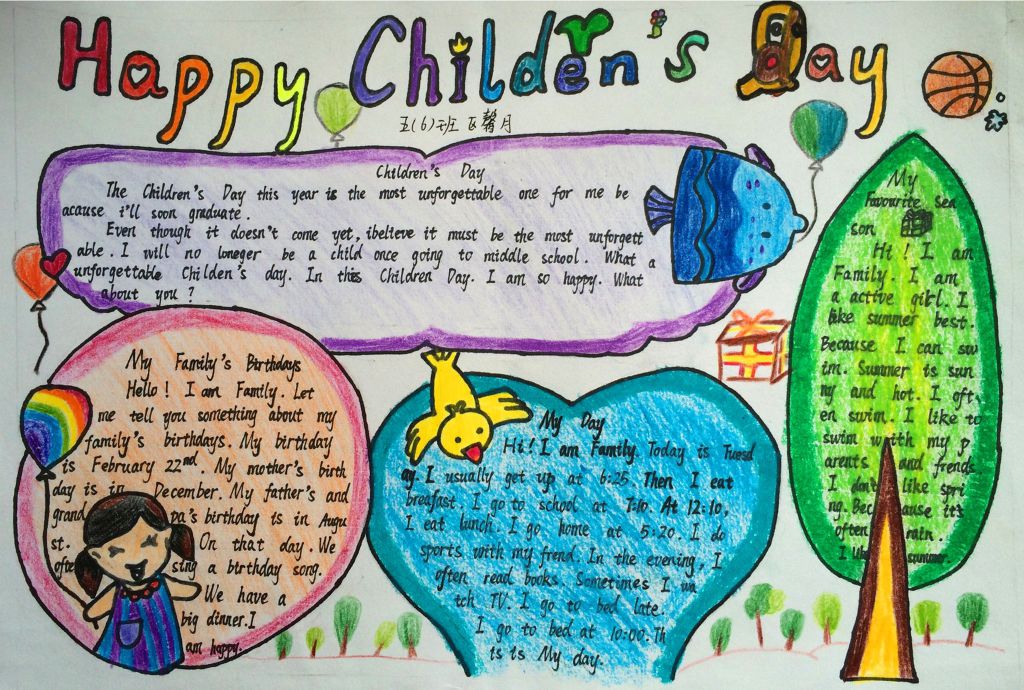 Happy Children's Day
五(6)班 区馨月
Children's Day
The Children's Day this year is the most unforgettable one for me be
acause i'll soon graduate.
Even though it doesn't come yet, ibelieve it must be the most unforgett
able. I will no loneger be a child once going to middle school. What a
unforgettable Childen's day. In this Children Day. I am so happy. What
about you ?
My Family's Birthdays
Hello! I am Family. Let
me tell you something about my
family's birthdays. My birthday
is February 22nd. My mother's birth
day is in December. My father's and
grand pa's birthday is in Augu
st. On that day. We
often sing a birthday song.
We have a
big dinner. I
am happy.
My Day
Hi! I am Family. Today is Tuesd
ay. I usually get up at 6:25. Then I eat
breafast. I go to school at 7:10. At 12:10,
I eat lunch. I go home at 5:20. I do
sports with my frend. In the evening, I
often read books. Sometimes I wa
tch TV. I go to bed late.
I go to bed at 10:00. Th
is is My day.
My
Favourite Sea
son
Hi! I am
Family. I am
a active girl. I
like summer best.
Because I can sw
im. Summer is sun
ny and hot. I oft
en swim. I like to
swim with my p
arents and frends.
I don't like spri
ng. Because it's
often rain.
I summer.